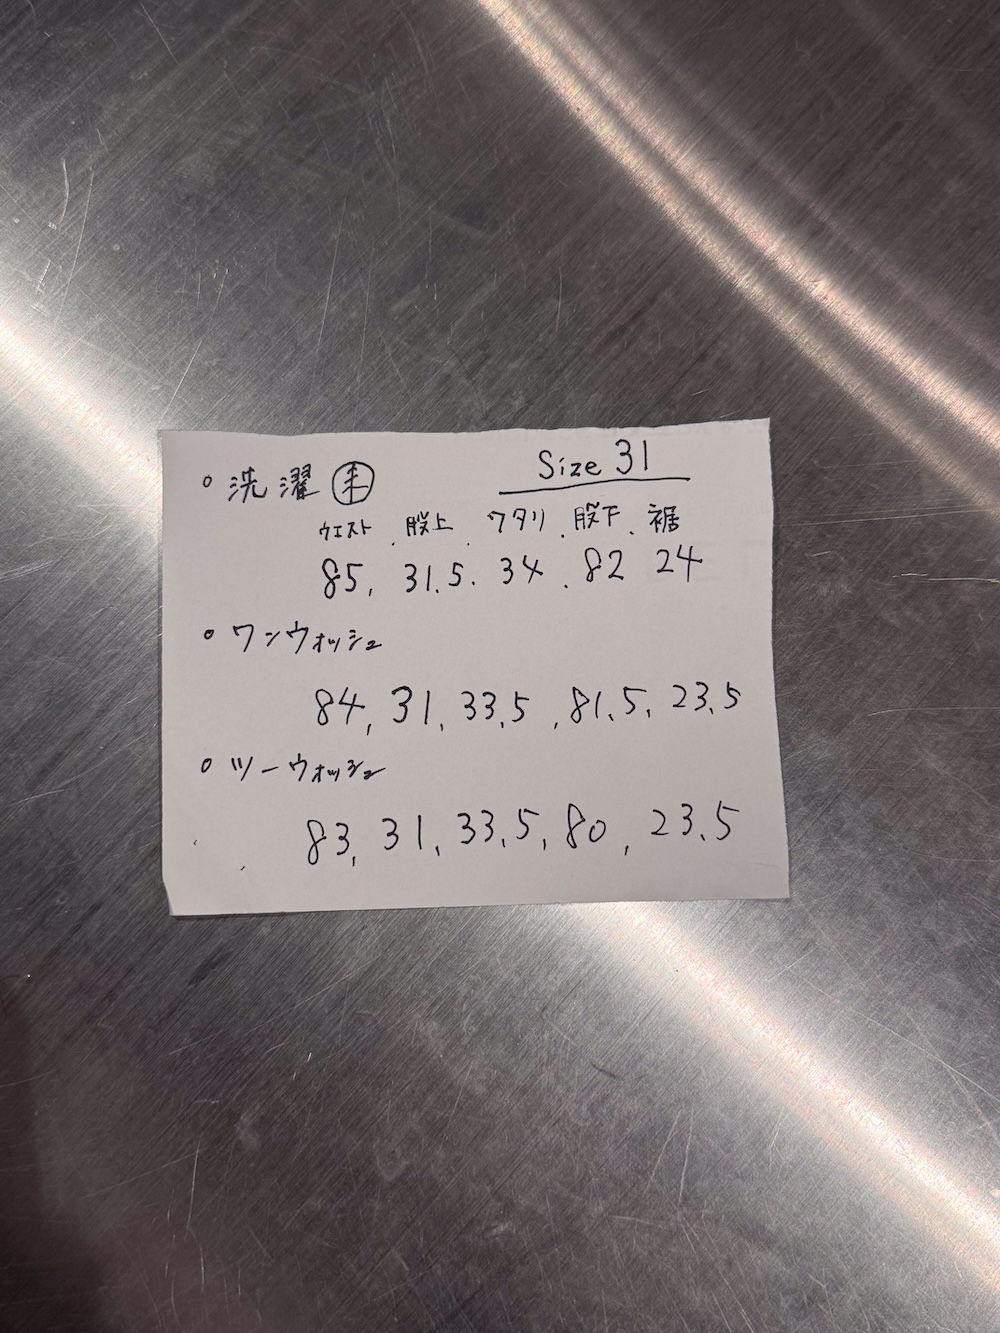 Size 31
。洗濯㊍
ウエスト.股上.ワタリ.股下、裾
85, 31.5. 34. 82 24
。ワンウォッシュ
84, 31, 33.5, 81.5, 23.5
。ツーウォッシュ
83, 31, 33.5, 80, 23.5